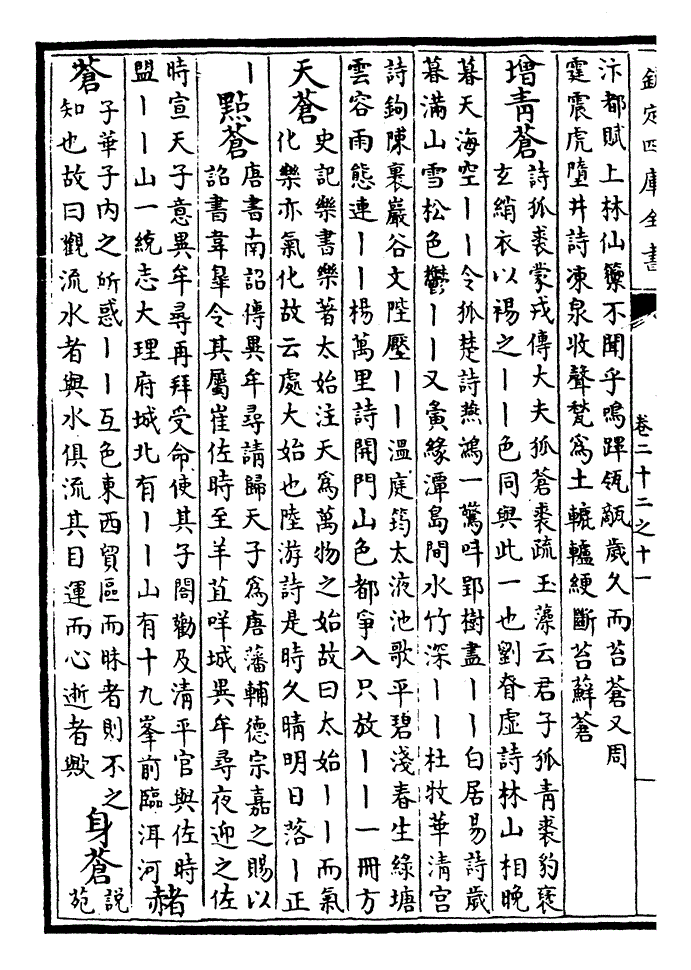 欽定四庫全書
卷二十二之十一
汴都賦上林仙籞不聞乎鳴蹕瓴甋歲久而苔蒼又周
霆震虎墮井詩凍泉收聲甃為土轆轤綆斷苔蘚蒼
增青蒼
詩狐裘蒙戎傳大夫狐蒼裘疏玉藻云君子狐青裘豹褎
玄綃衣以裼之丨丨色同與此一也劉脊虛詩林山相晚
暮天海空丨丨令狐楚詩燕鴻一驚呌郢樹盡丨丨白居易詩歲
暮滿山雪松色鬱丨丨又夤緣潭島間水竹深丨丨杜牧華清宮
詩鉤陳裹巖谷文陛壓丨丨溫庭筠太液池歌平碧淺春生綠塘
雲容雨態連丨丨楊萬里詩開門山色都爭入只放丨丨一冊方
天蒼
史記樂書樂著太始注天為萬物之始故曰太始丨丨而氣
化樂亦氣化故云處大始也陸游詩是時久晴明日落丨正
丨
點蒼
唐書南詔傳異牟尋請歸天子為唐藩輔德宗嘉之賜以
詔書韋臯令其屬崔佐時至羊苴咩城異牟尋夜迎之佐
時宣天子意異牟尋再拜受命使其子閤勸及清平官與佐時
盟丨丨山一統志大理府城北有丨丨山有十九峯前臨洱河
赭
蒼
子華子内之所惑丨丨互色東西貿區而昧者則不之
知也故曰觀流水者與水俱流其目運而心逝者歟
身蒼
說
苑